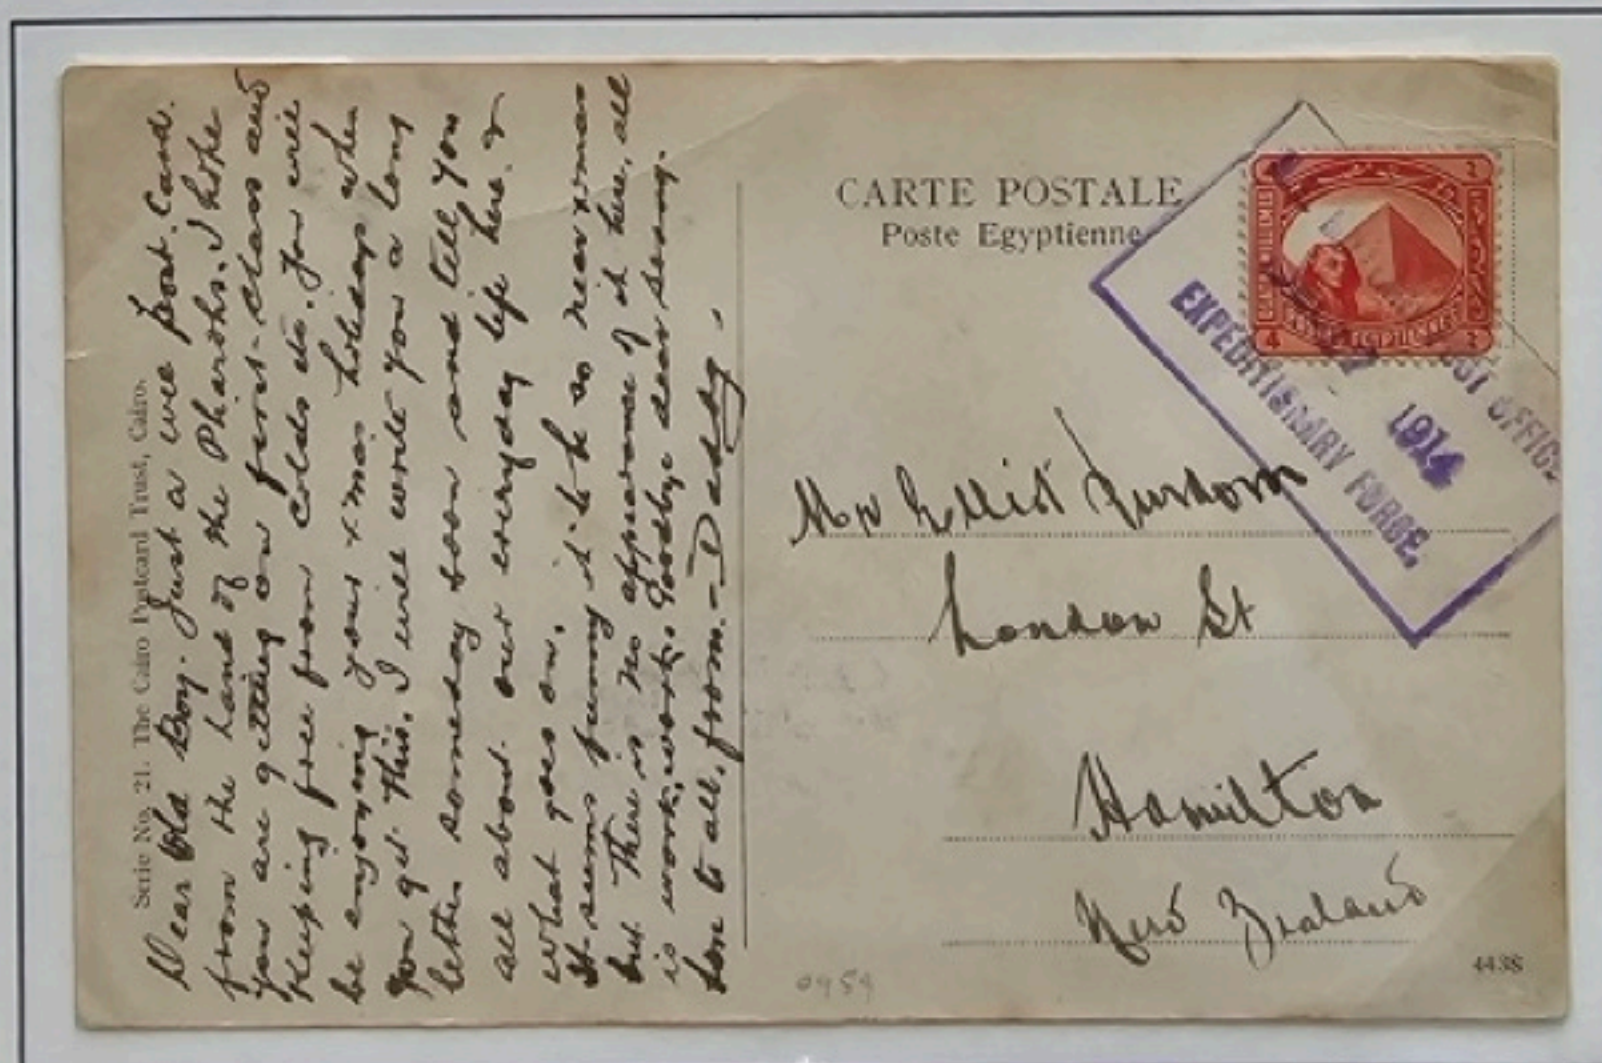 Serie No. 21. The Cairo Postcard Trust, Cairo.
Dear Old Boy. Just a wee post. Card.
from the Land of the Pharohs. I hope
you are getting on first-class and
keeping free from colds etc. You will
be enjoying your xmas holidays when
you get this. I will write you a long
letter someday soon and tell you
all about our everyday life here &
what goes on.
It seems funny it to be so near xmas
but there is no appearance of it here, all
is work, work. Goodbye dear sonny.
love to all, from.- Daddy.
CARTE POSTALE
Poste Egyptienne
4
2
4
2
POST OFFICE
1914
EXPEDITIONARY FORCE.
Mr Ellist
London St
Hamilton
New Zealand
0959
4438